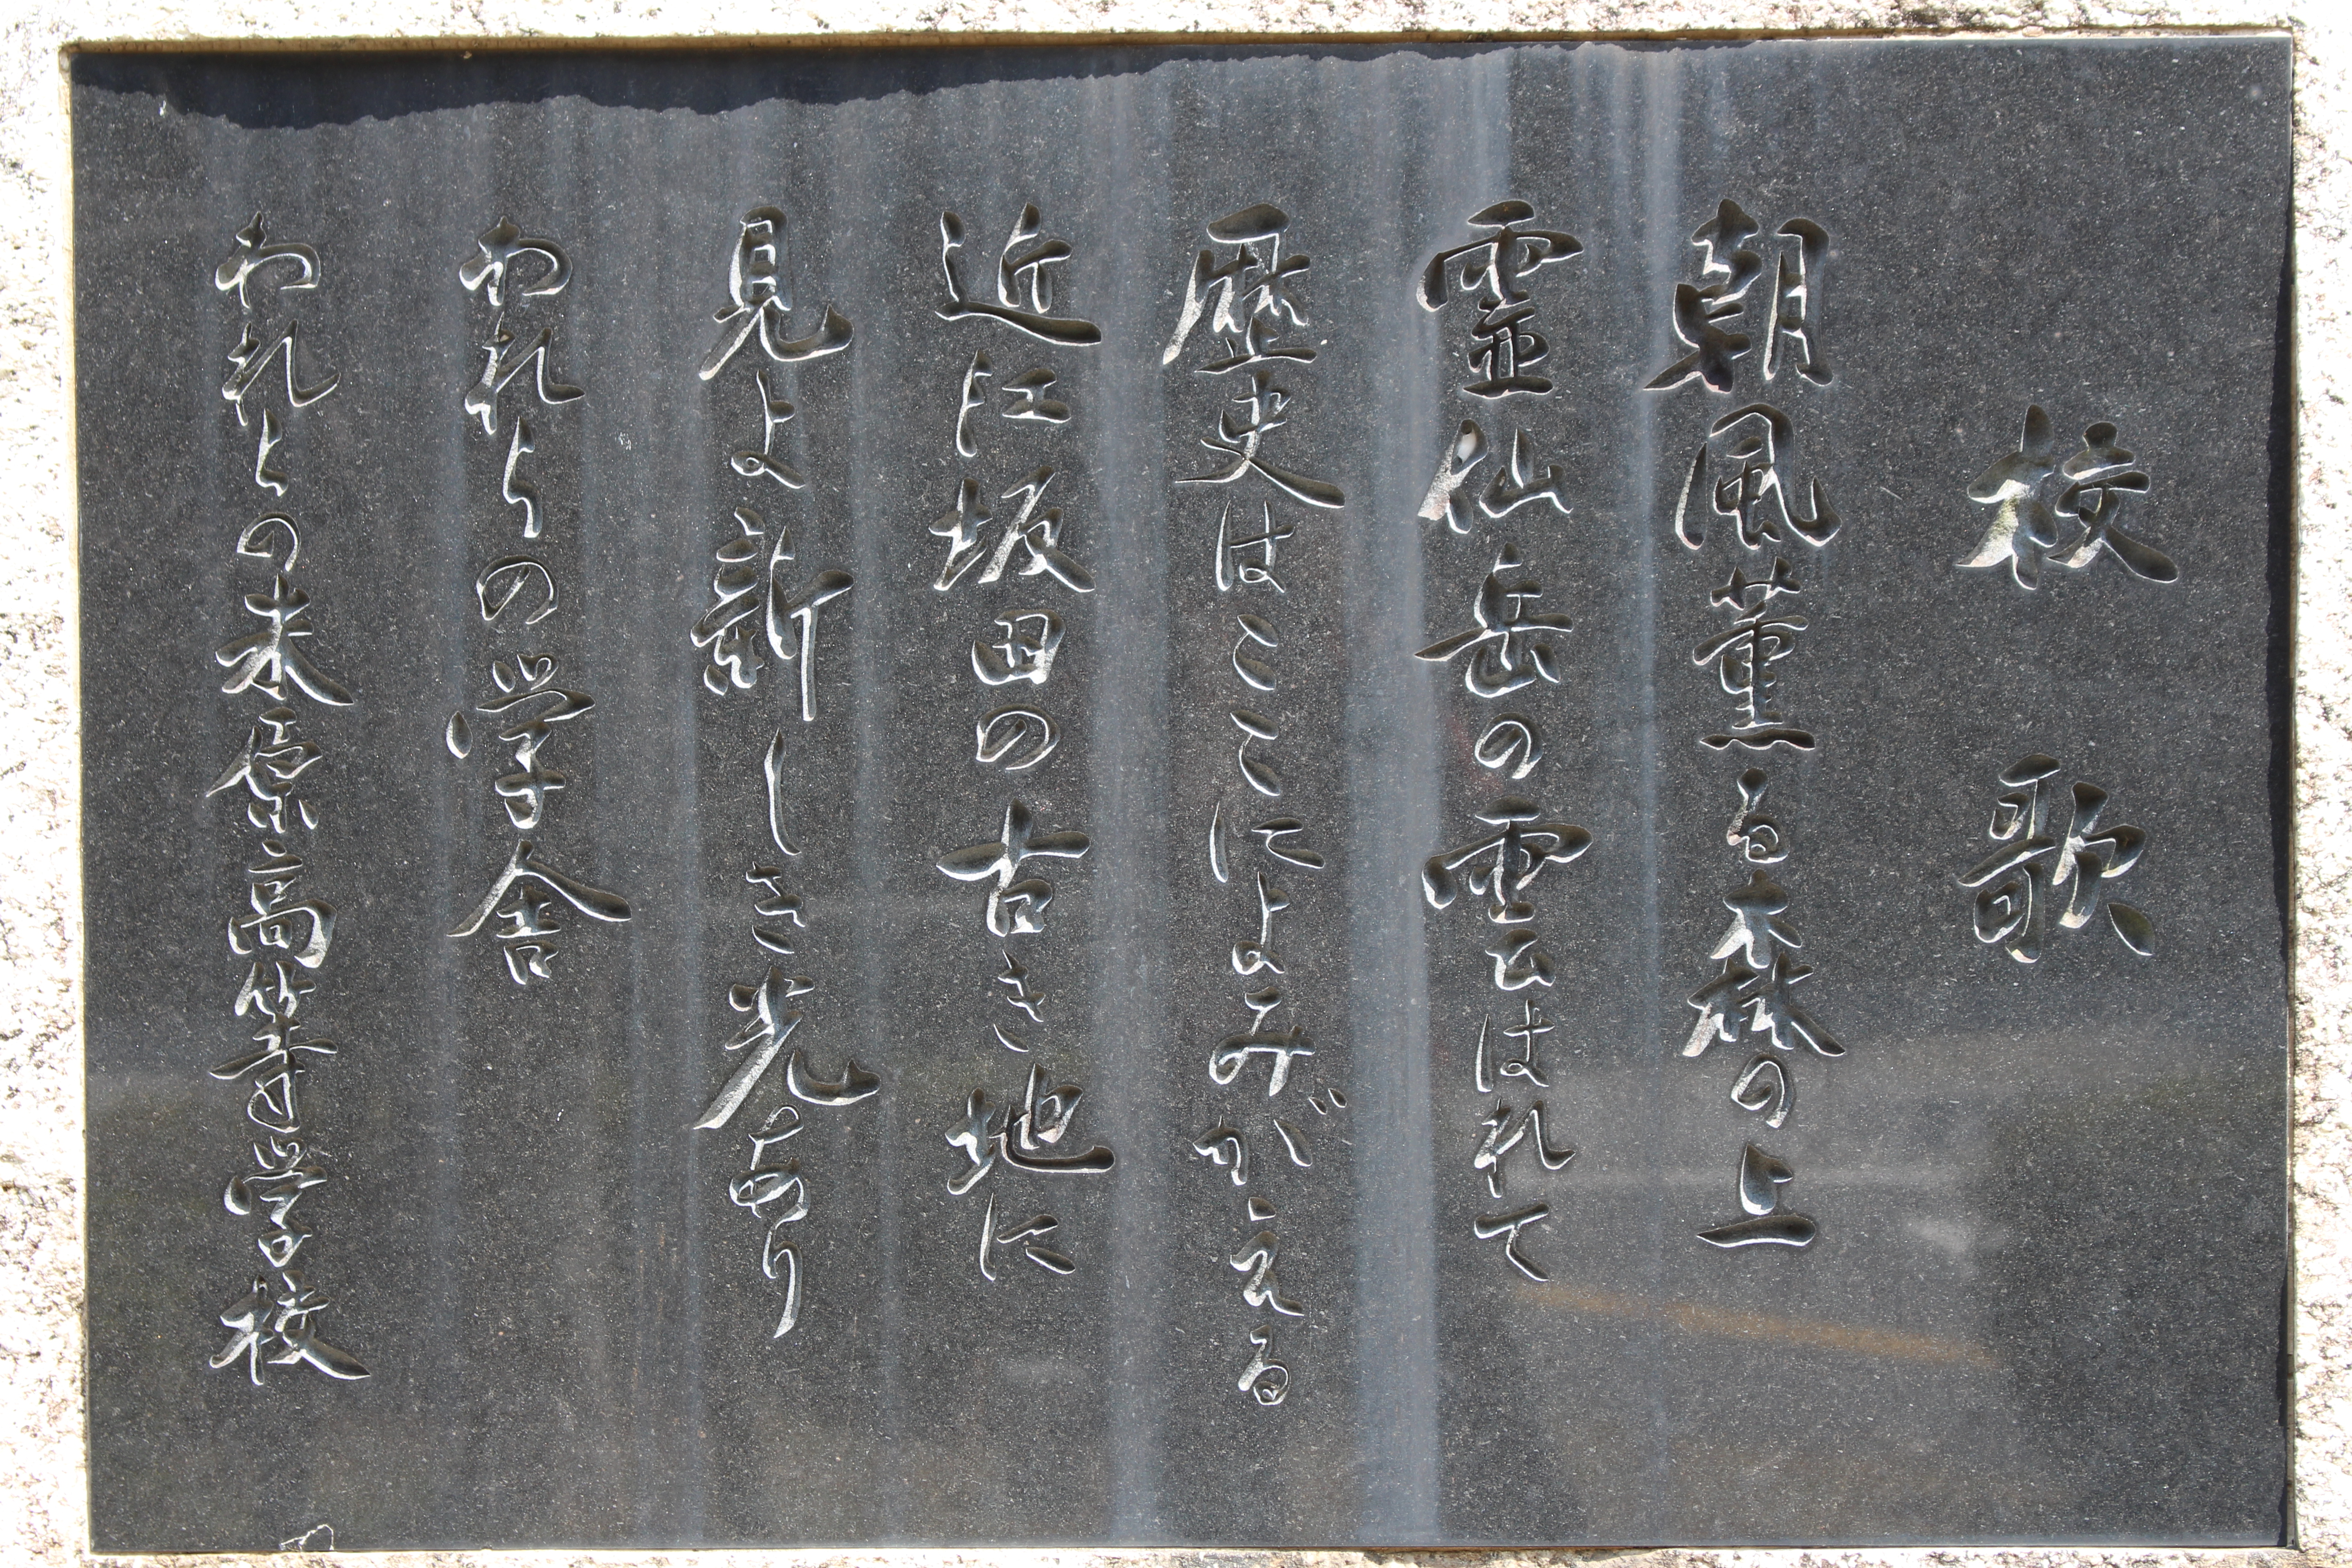 校歌
朝風薫る森の上
霊仙岳の雲はれて
歴史はここによみがえる
近江坂田の古き地に
見よ新しき光あり
われらの学舎
われらの米原高等学校